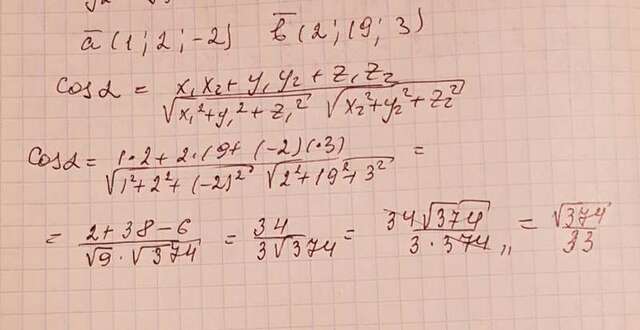 a̅ (1; 2; -2) b̅ (2; 19; 3)
cos α = x₁x₂ + y₁y₂ + z₁z₂ / √x₁² + y₁² + z₁² √x₂² + y₂² + z₂²
cos α = 1·2 + 2·19 + (-2)(·3) / √1² + 2² + (-2)² √2² + 19² + 3² =
= 2 + 38 - 6 / √9 · √374 = 34 / 3√374 = 34√374 / 3 · 374 11 = √374 / 33